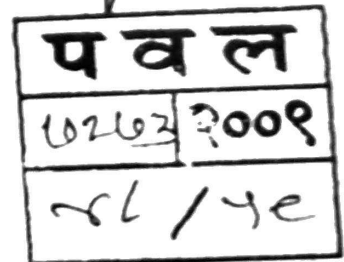 प व ल
७२७३ २००९
४८ / ५९